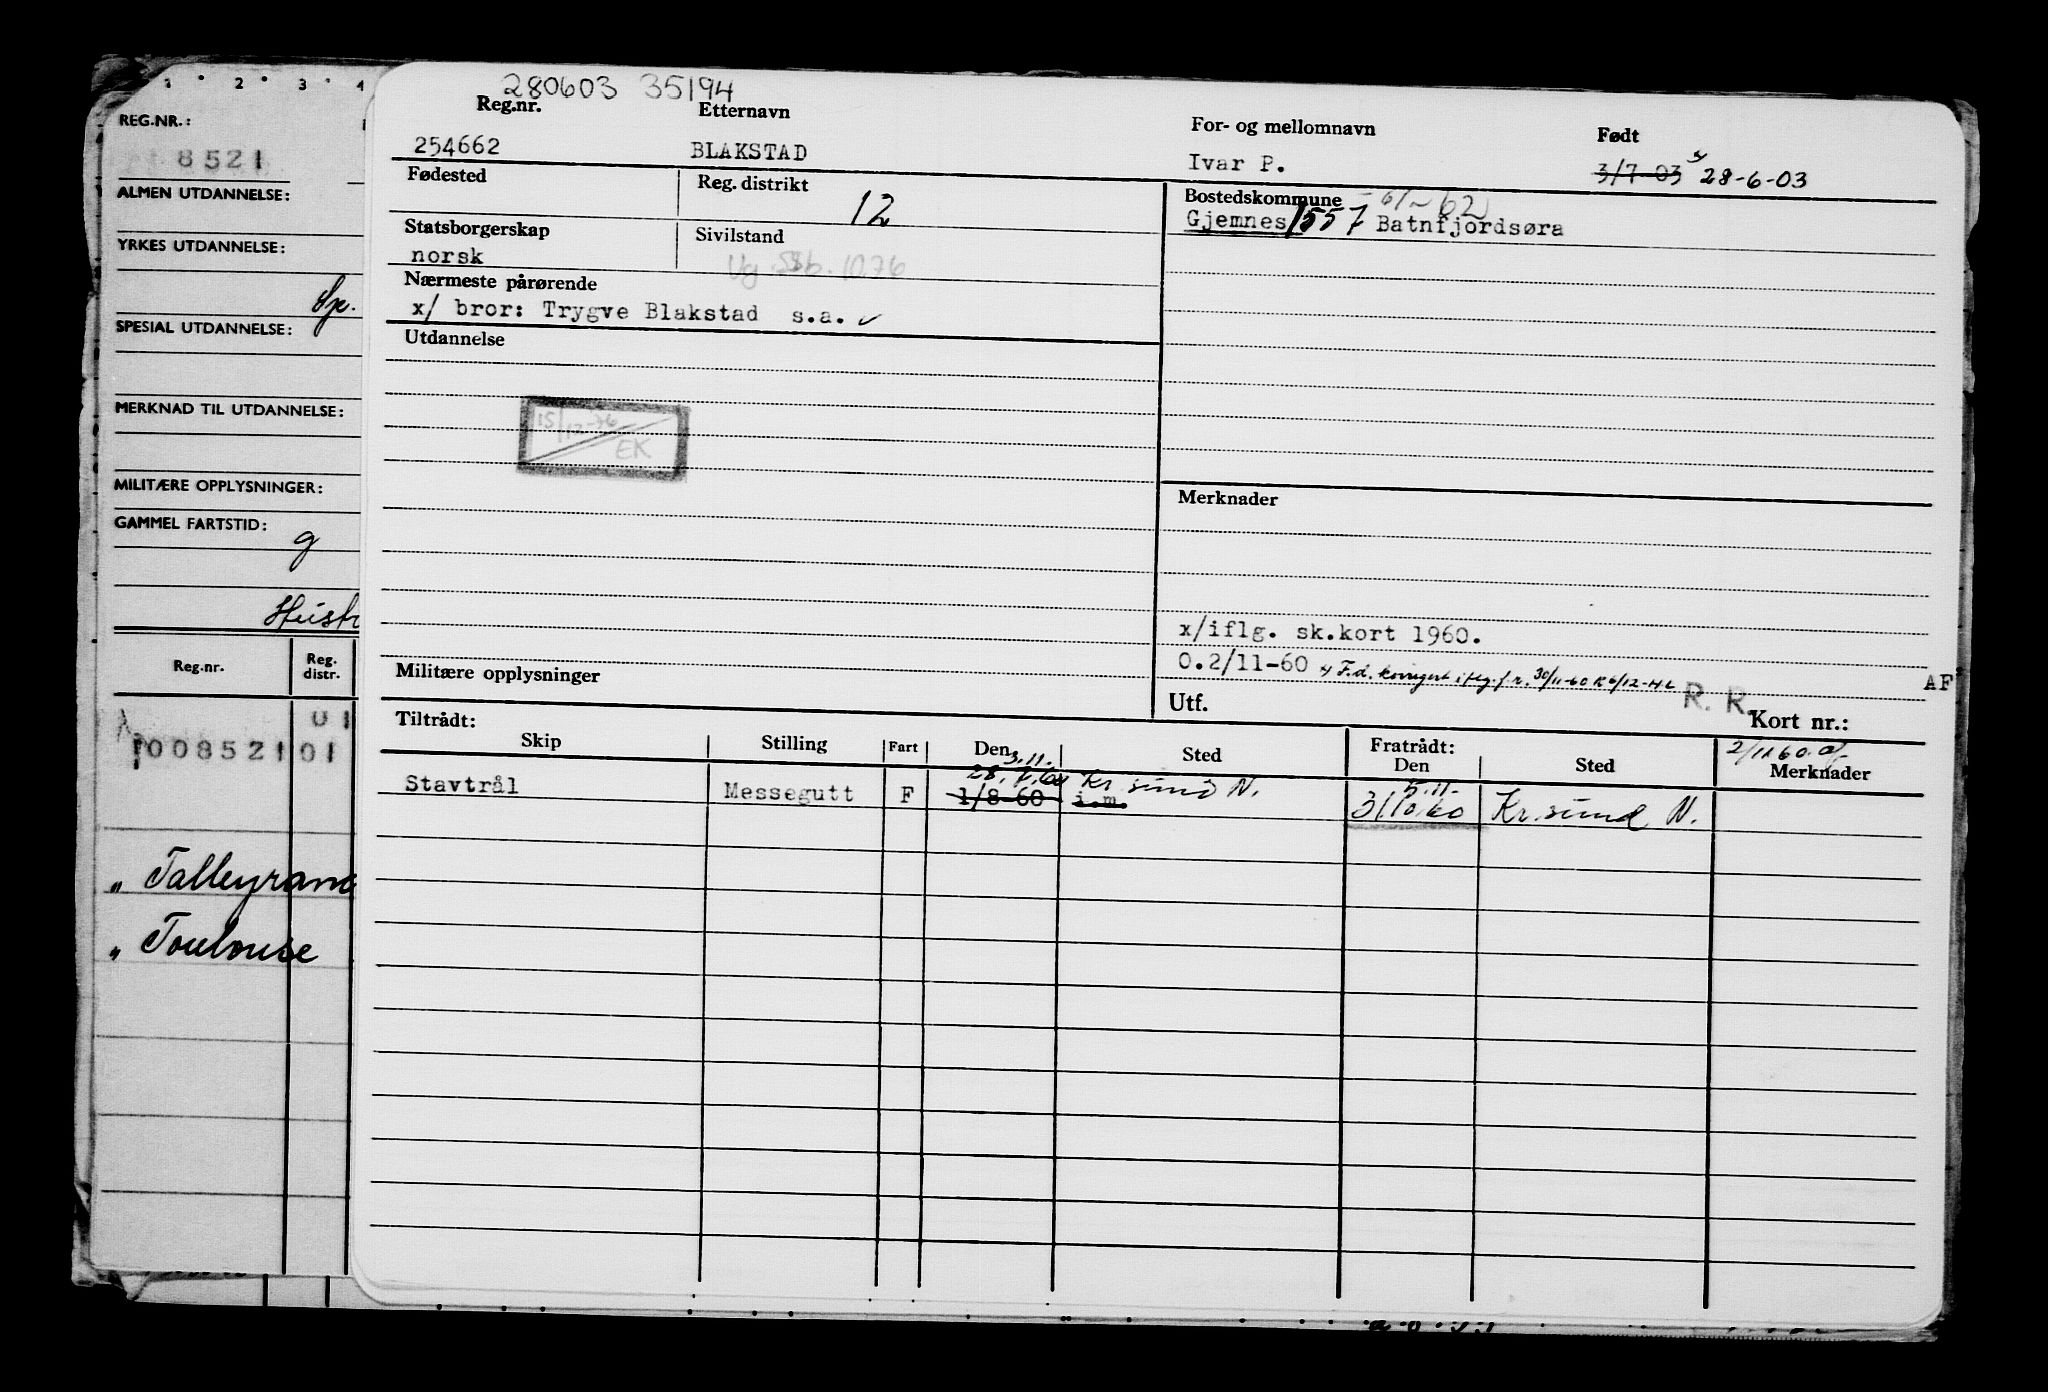 1 2 3 4
REG.NR.:
8521
ALMEN UTDANNELSE:
YRKES UTDANNELSE:
Sp.
SPESIAL UTDANNELSE:
MERKNAD TIL UTDANNELSE:
MILITÆRE OPPLYSNINGER:
GAMMEL FARTSTID:
g
Reg.nr. Reg. distr.
01
100852101
" Talleyran
" Toulouse
280603 35194
Reg.nr. Etternavn For- og mellomnavn Født
254662 BLAKSTAD Ivar P. 3/7-03 28-6-03
Fødested Reg. distrikt Bostedskommune 61-62
12 Gjemnes 1557 Batnfjordsøra
Statsborgerskap Sivilstand
norsk
Nærmeste pårørende
x/ bror: Trygve Blakstad s.a.
Utdannelse
15/12-76
EK
Merknader
x/iflg. sk.kort 1960.
O.2/11-60 F.d. korrigert iflg. f.r. 30/11-60 R 6/12-HL
AF
Militære opplysninger
Utf. R. R. Kort nr.:
Tiltrådt: Fratrådt: 2/11.60.
Skip Stilling Fart Den Sted Den Sted Merknader
3.11. 5.11.
Stavtrål Messegutt F 1/8-60 i.m. Kr.sund N. 31/10.60 Kr.sund N.